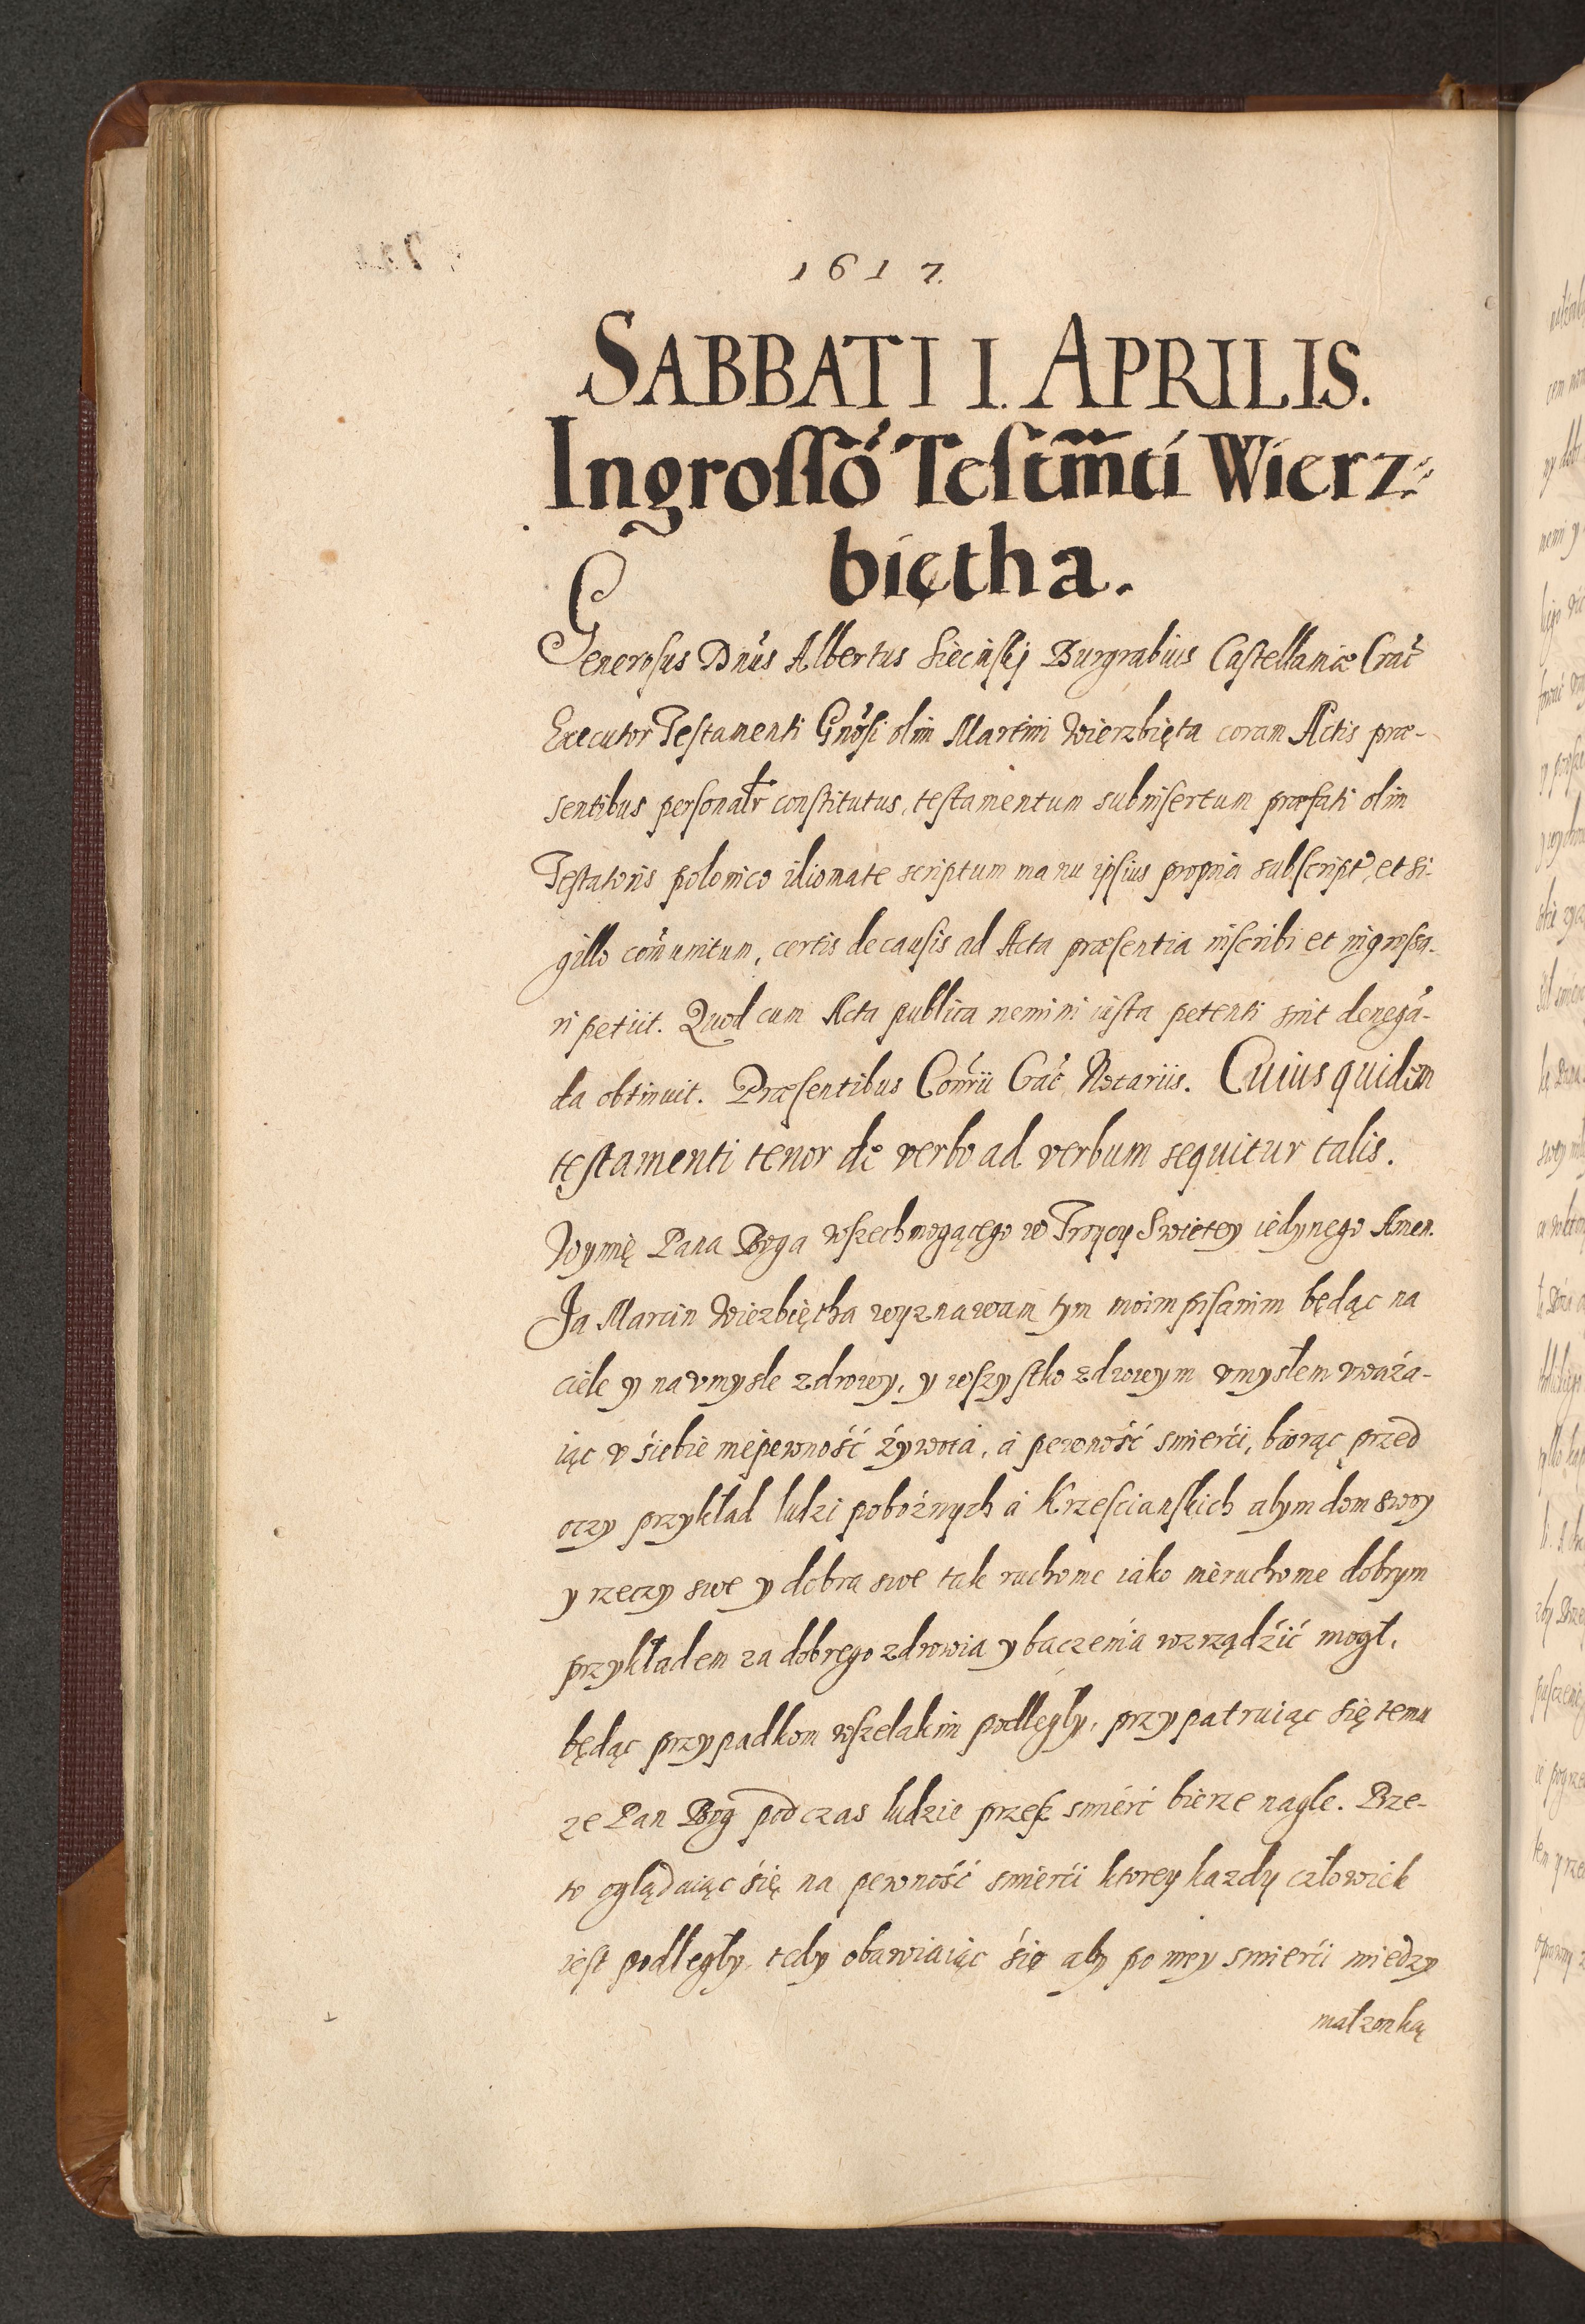 1617.
SABBATI I. APRILIS.
Ingrossõ Testm̃ti Wierz-
biętha.
Generosus Dnũs Albertus Siecinskj Burgrabius Castellaniæ Crac̃
Executor Testamenti Gnõsi olim Martini Wierzbięta coram Actis præ-
sentibus personalr̃ constitutus, testamentum subinsertum præfati olim
Testatoris polonico idiomate scriptum manu ipsius propria subscript̃, et si-
gillo com̃unitum, certis de causis ad Acta præsentia inscribi et ingrossa-
ri petiit. Quod cum Acta publica nemini iusta petenti sint denegã-
da obtinuit. Præsentibus Com̃rii Crac̃ Notariis. Cuius quidem
testamenti tenor de verbo ad verbum sequitur talis.
Wymię Pana Boga wszechmogącego w Troycy Swiętey iedynego Amen.
Ja Marcin Wiezbiętha wyznawam tym moim pisanim będąc na
ciele y na vmysle zdrowy, y wszystko zdrowym vmysłem vważa-
iąc v siebie niepewność żywota, á pewność smierći, biorąc przed
oczy przykład ludzi pobożnych á Krzescianskich abym dom swoy
y rzeczy swe y dobra swe tak ruchome iako nieruchome dobrym
przykładem za dobrego zdrowia y baczenia wzrządźić mogł,
będąc przypadkom wszelakim podległy, przypatruiąc się temu
ze Pan Bog pod czas ludzie przesz smierć bierze nagle. Prze-
to oglądaiąc się na pewność smierći ktorey kazdy człowiek
iest podległy, tedy obawiaiąc się aby po mey smierći miedzy
małzonką